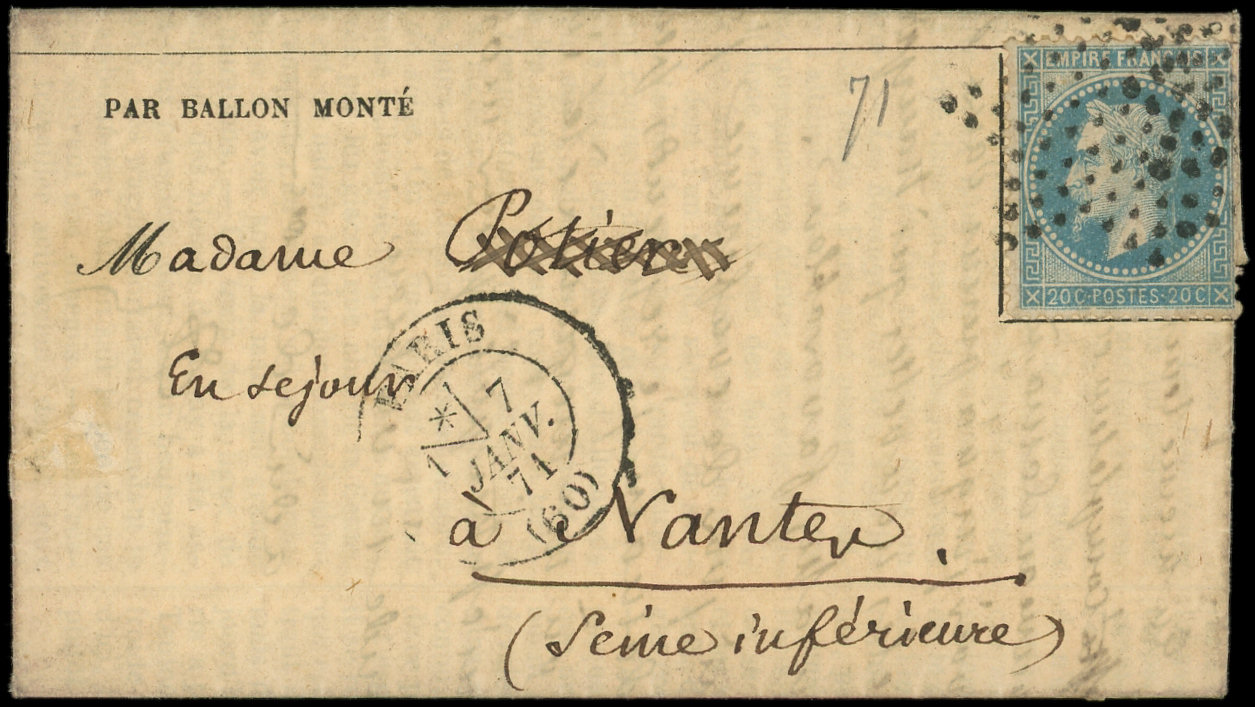 EMPIRE FRANÇAIS
PAR BALLON MONTÉ
71
20 C · POSTES · 20 C
Madame Potier
En sejour
PARIS
1
7
JANV.
71
(60)
a Nantes.
(Seine inférieure)